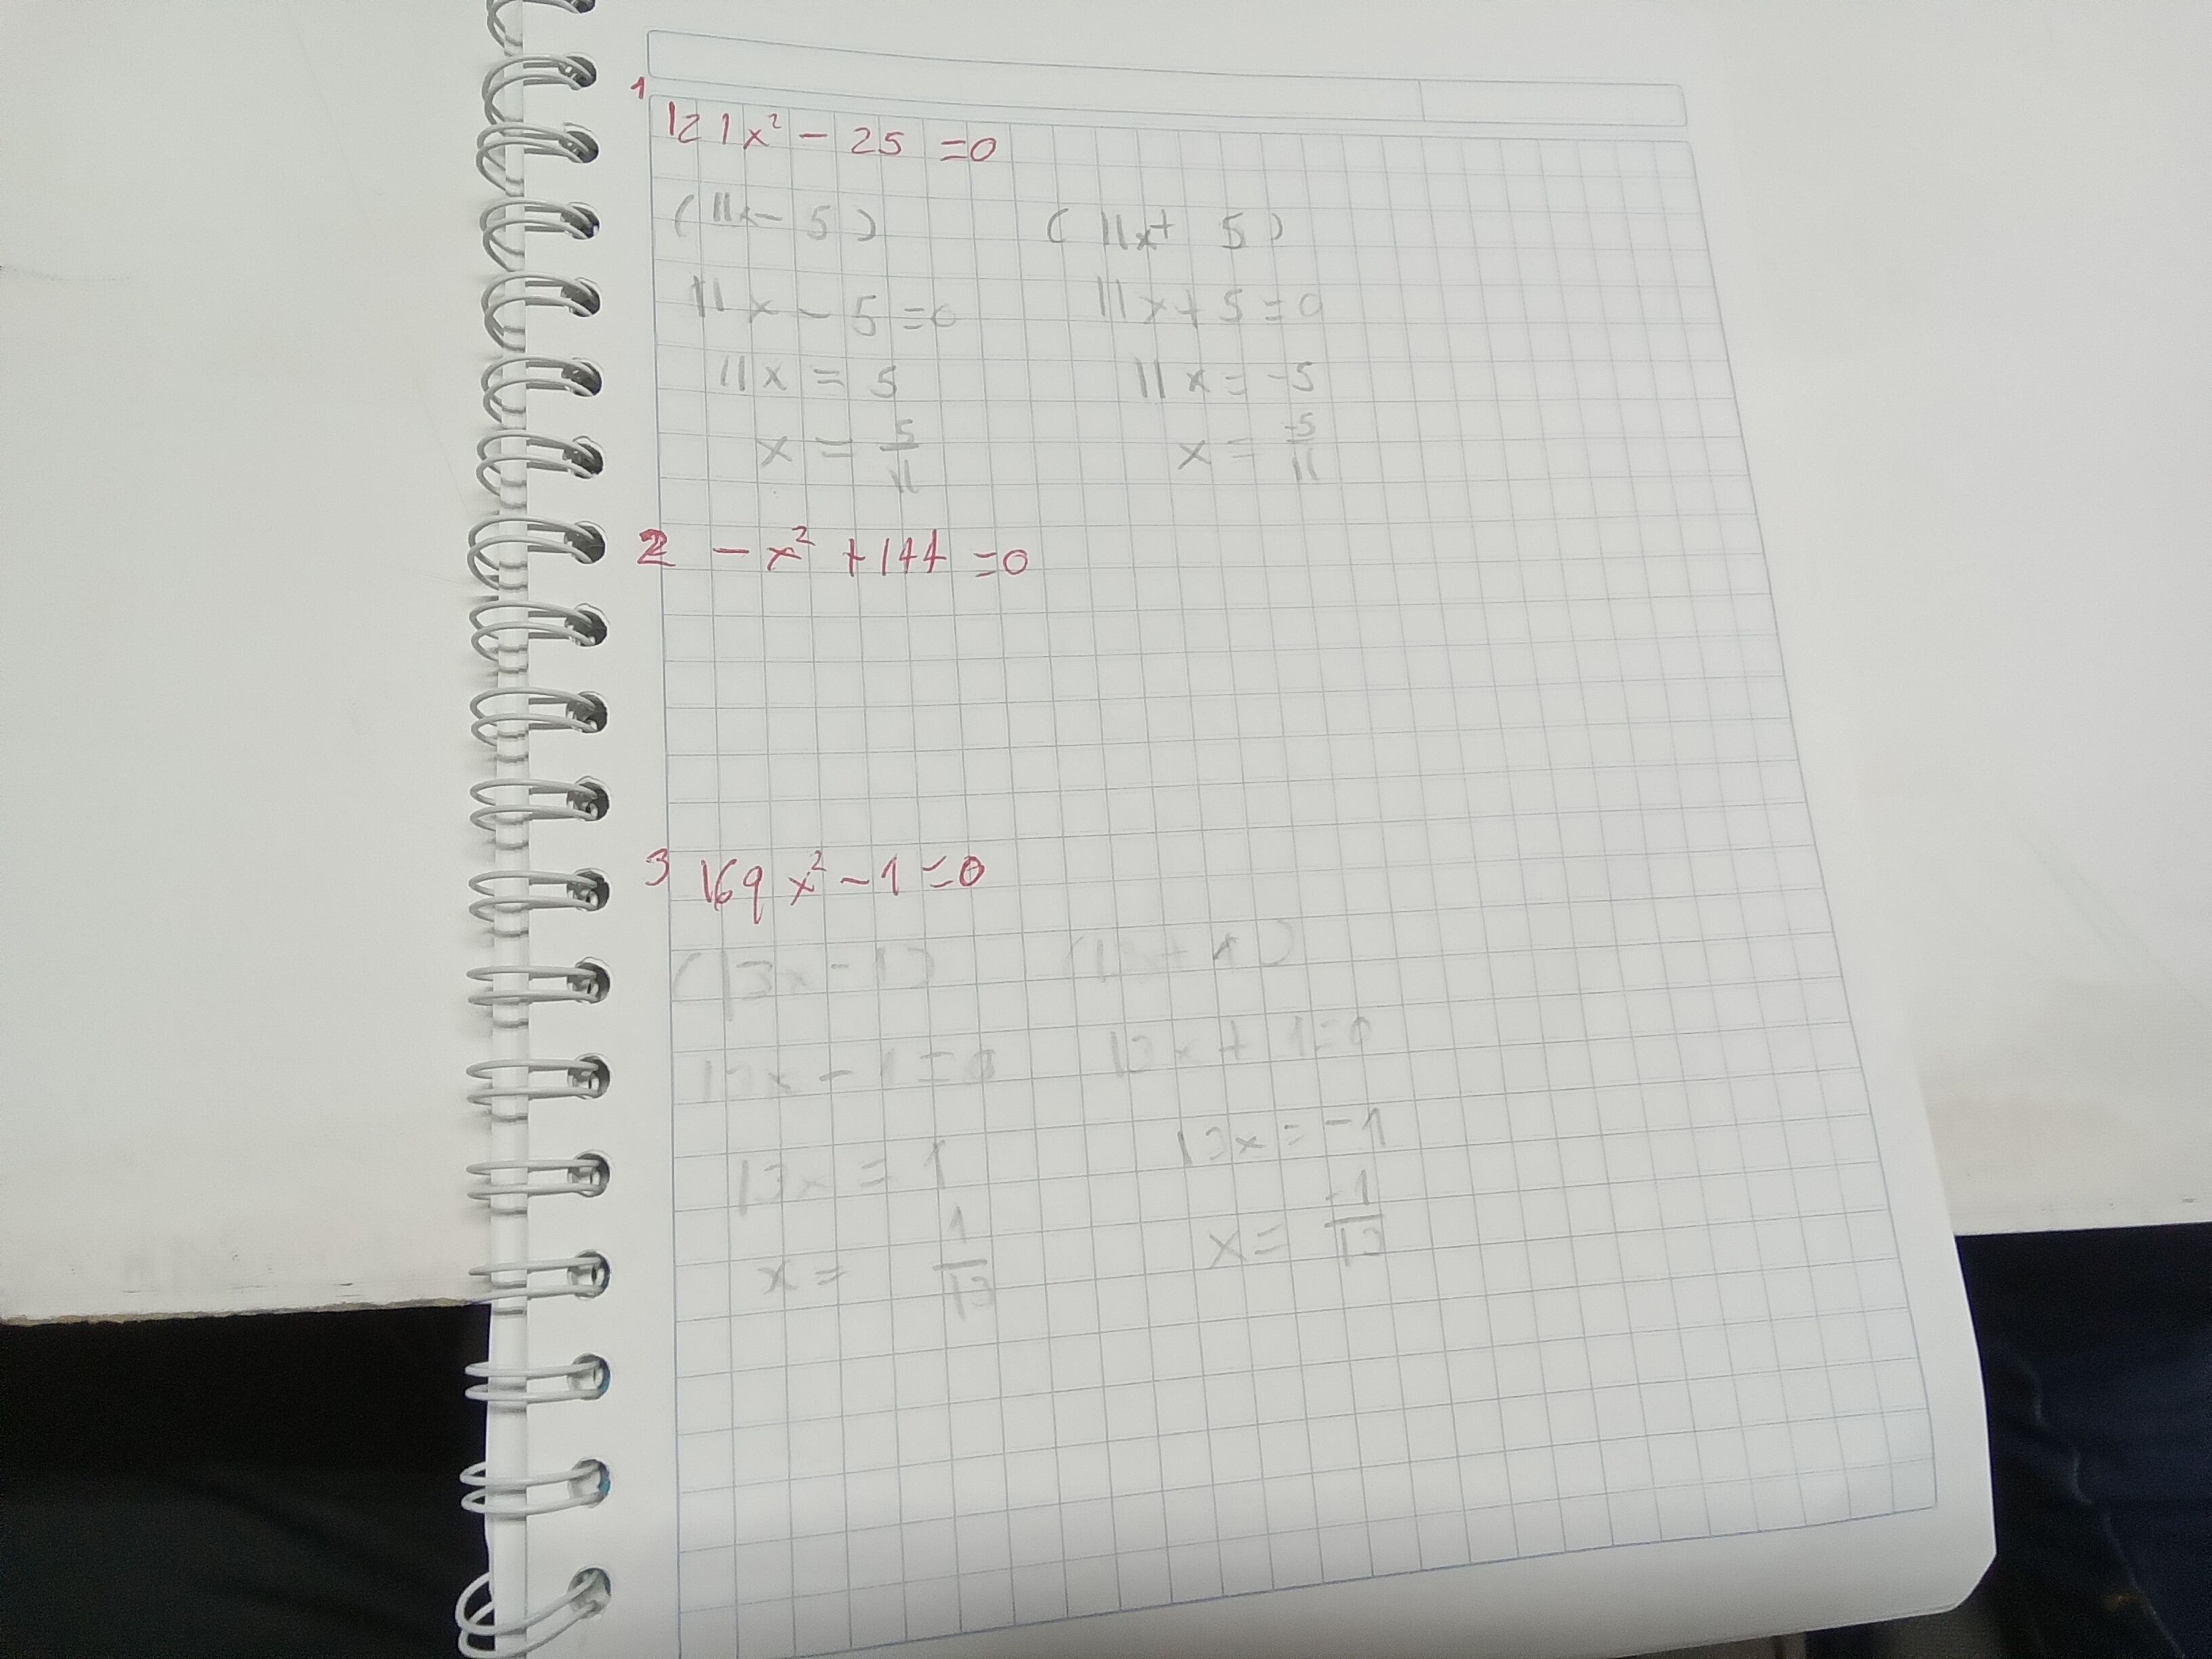 1
121x² - 25 = 0
(11x - 5) (11x + 5)
11x - 5 = 0 11x + 5 = 0
11x = 5 11x = -5
x = 5/11 x = -5/11
2 -x² + 144 = 0
3 169x² - 1 = 0
(13x - 1) (13x + 1)
13x - 1 = 0 13x + 1 = 0
13x = 1 13x = -1
x = 1/13 x = -1/13